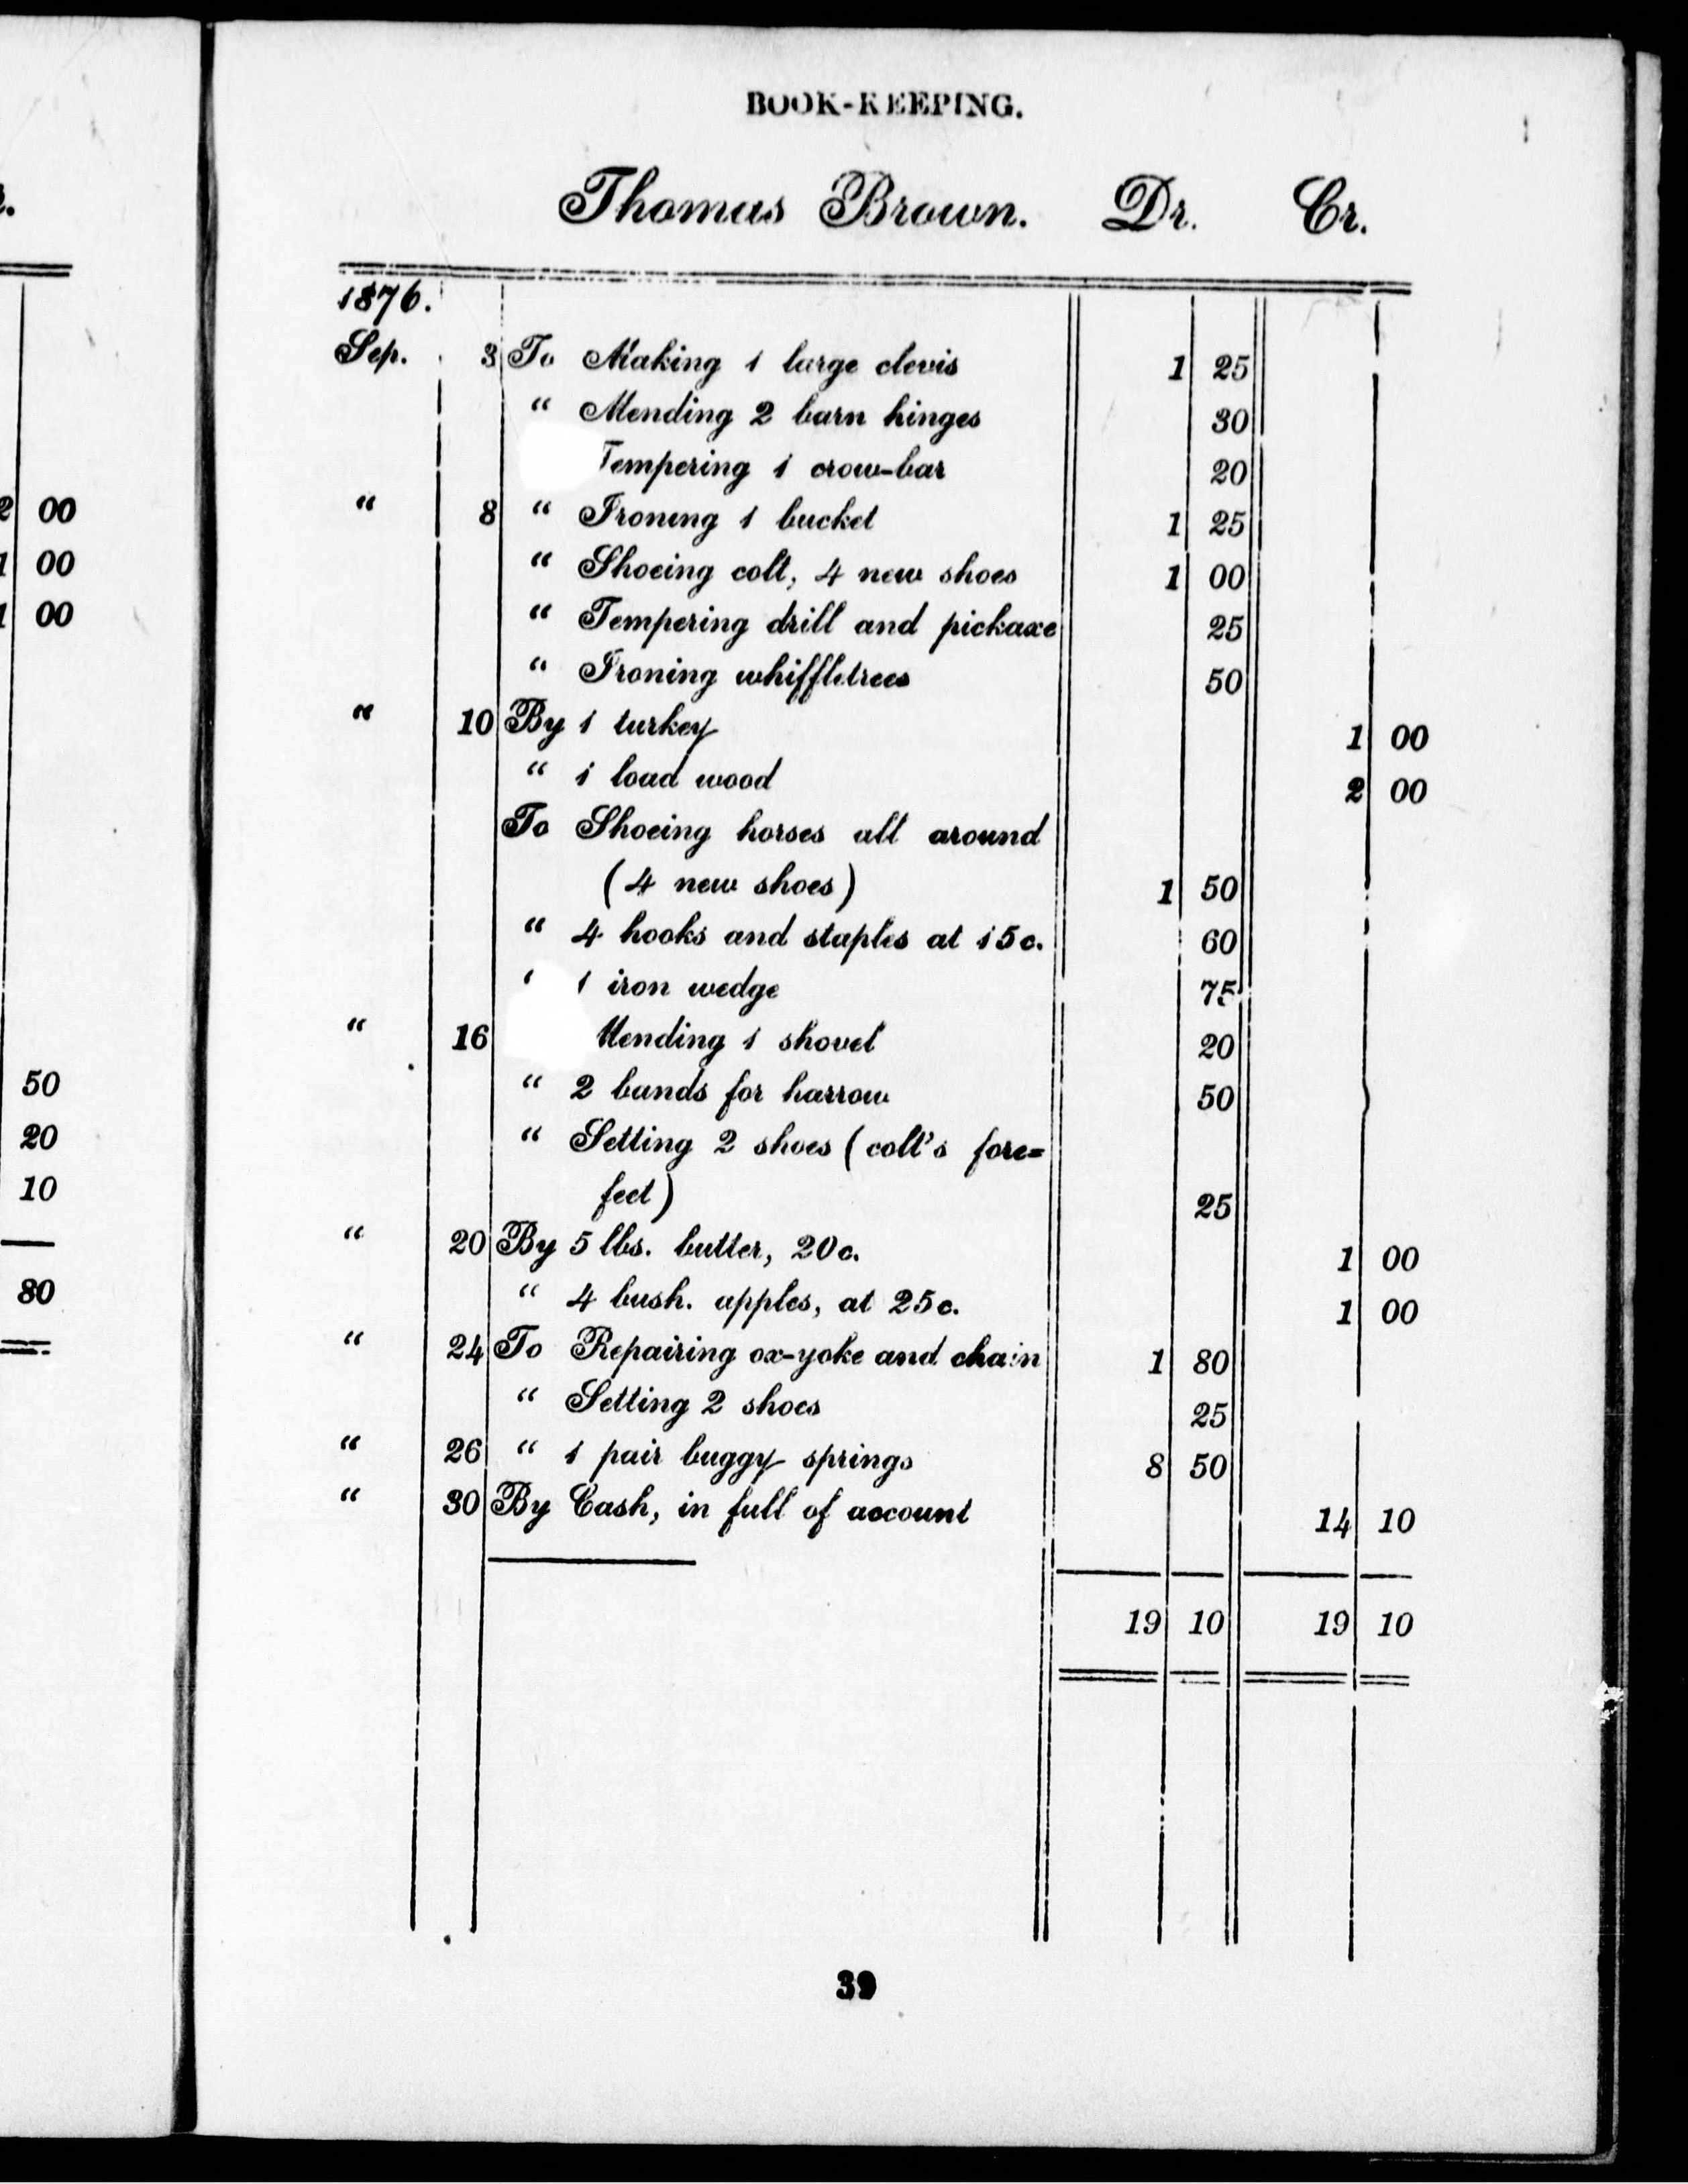 BOOK-KEEPING.
Thomas Brown. Dr. Cr.
1876.
Sep. 3 To Making 1 large clevis 1 25
" Mending 2 barn hinges 30
Tempering 1 crow-bar 20
" 8 " Ironing 1 bucket 1 25
" Shoeing colt, 4 new shoes 1 00
" Tempering drill and pickaxe 25
" Ironing whiffletrees 50
" 10 By 1 turkey 1 00
" 1 load wood 2 00
To Shoeing horses all around
(4 new shoes) 1 50
" 4 hooks and staples at 15c. 60
' 1 iron wedge 75
" 16 Mending 1 shovel 20
" 2 bands for harrow 50
" Setting 2 shoes (colt's fore=
feet) 25
" 20 By 5 lbs. butter, 20c. 1 00
" 4 bush. apples, at 25c. 1 00
" 24 To Repairing ox-yoke and chain 1 80
" Setting 2 shoes 25
" 26 " 1 pair buggy springs 8 50
" 30 By Cash, in full of account 14 10
19 10 19 10
39
2 00
1 00
1 00
50
20
10
80